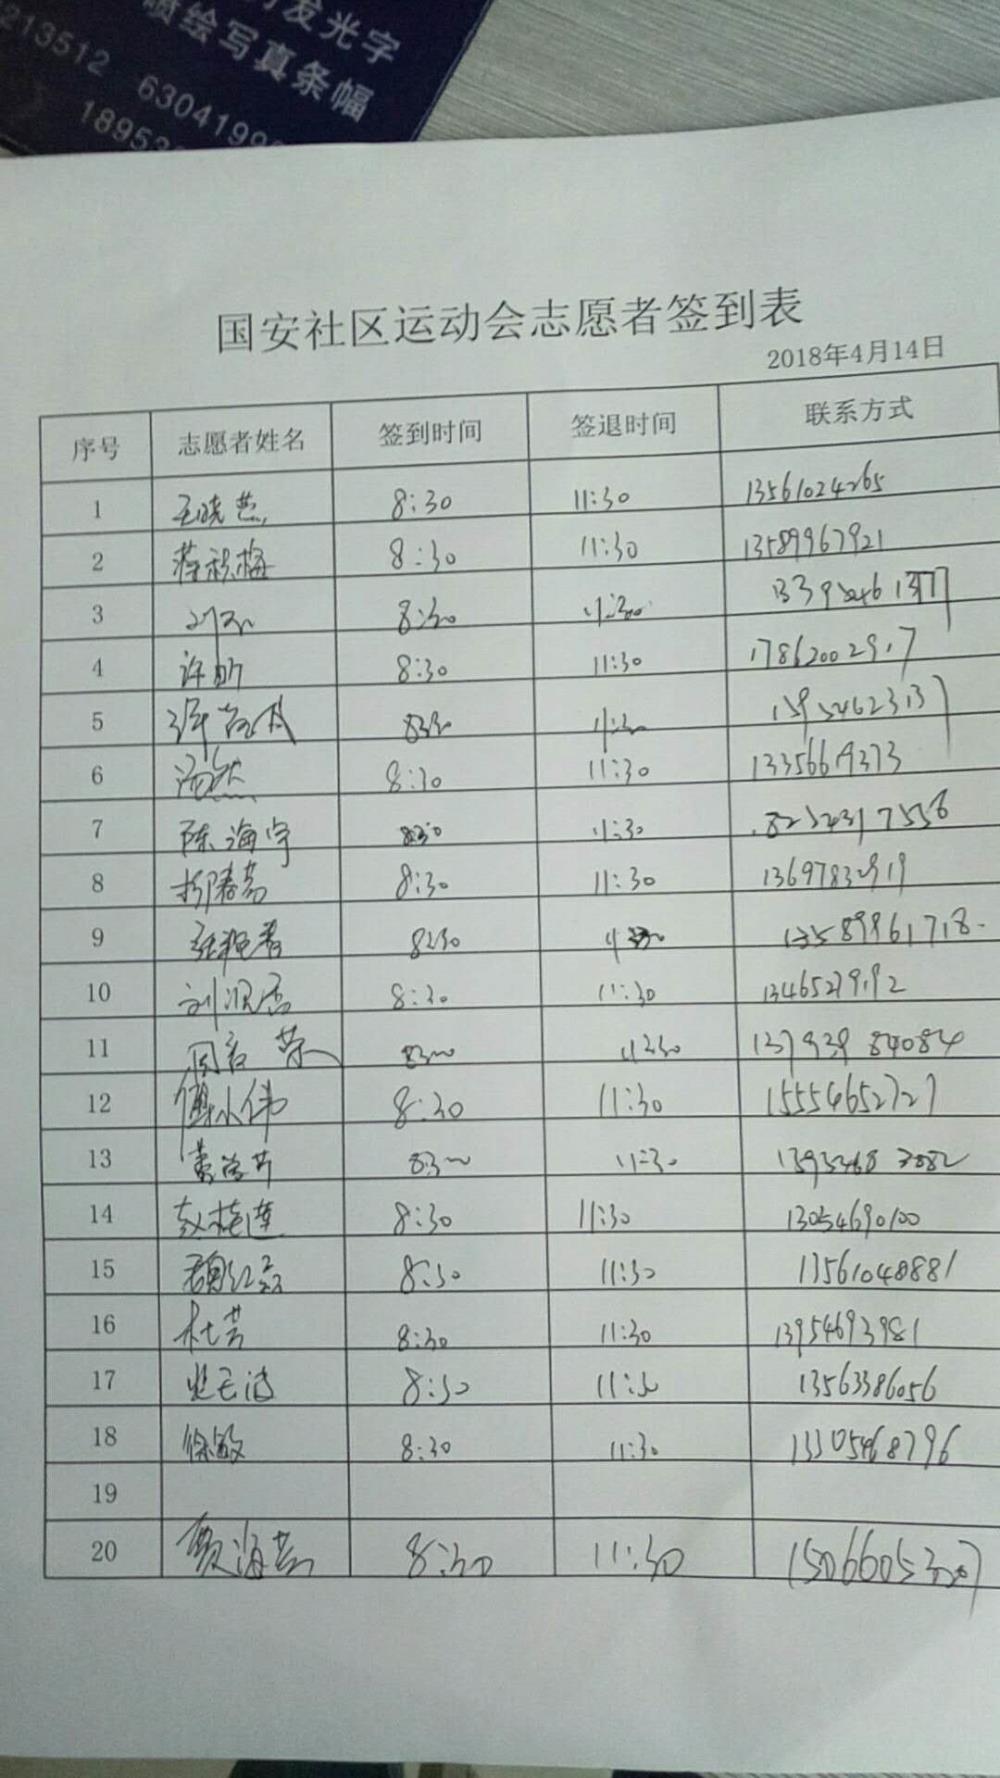 发光字
喷绘写真条幅
213512 6304199
18953
国安社区运动会志愿者签到表
2018年4月14日
序号 志愿者姓名 签到时间 签退时间 联系方式
1 王晓燕 8:30 11:30 13561024265
2 蒋秋梅 8:30 11:30 13589967921
3 8:30 11:30
4 许昕 8:30 11:30 17862002917
5 8:30 11:30
6 汤然 8:30 11:30 13356619373
7 陈海宇 8:30 11:30
8 8:30 11:30 13697832919
9 8:30 11:30 13589961718
10 8:30 11:30 13465279192
11 8:30 11:30 13793984084
12 8:30 11:30 15554652727
13 8:30 11:30
14 赵桂莲 8:30 11:30 13054690100
15 8:30 11:30 13561048881
16 杜芳 8:30 11:30 13954693981
17 8:30 11:30 13563386056
18 徐敏 8:30 11:30 13305468796
19
20 8:30 11:30